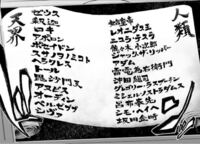 人類
始皇帝
レオニダス
ニコラ・テスラ
佐々木小次郎
ジャック・ザ・リッパー
アダム
雷電為右衛門
沖田総司
グレゴリー・ラスプーチン
ミシェル・ノストラダムス
呂布奉先
シモ・ヘイヘ
坂田金時
天界
ゼウス
釈迦
ロキ
アポロン
ポセイドン
スサノヲノミコト
ヘラクレス
毘沙門天
アヌビス
オーディン
ベルゼブブ
シヴァ